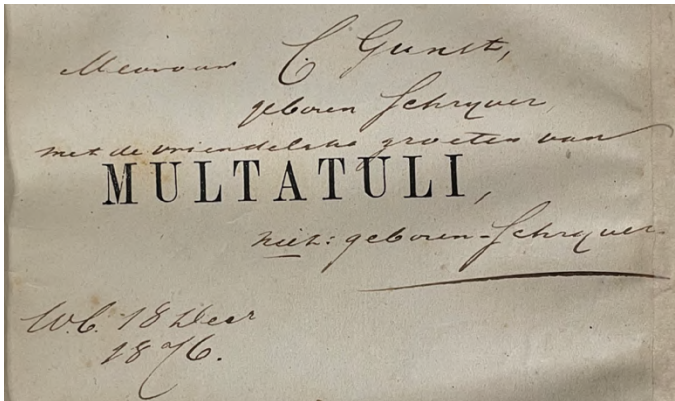 Mevrouw C. Gunst,
geboren Schryver,
met de vriendelyke groeten van
MULTATULI,
niet: geboren-Schryver.
Wb. 18 Decr
1876.